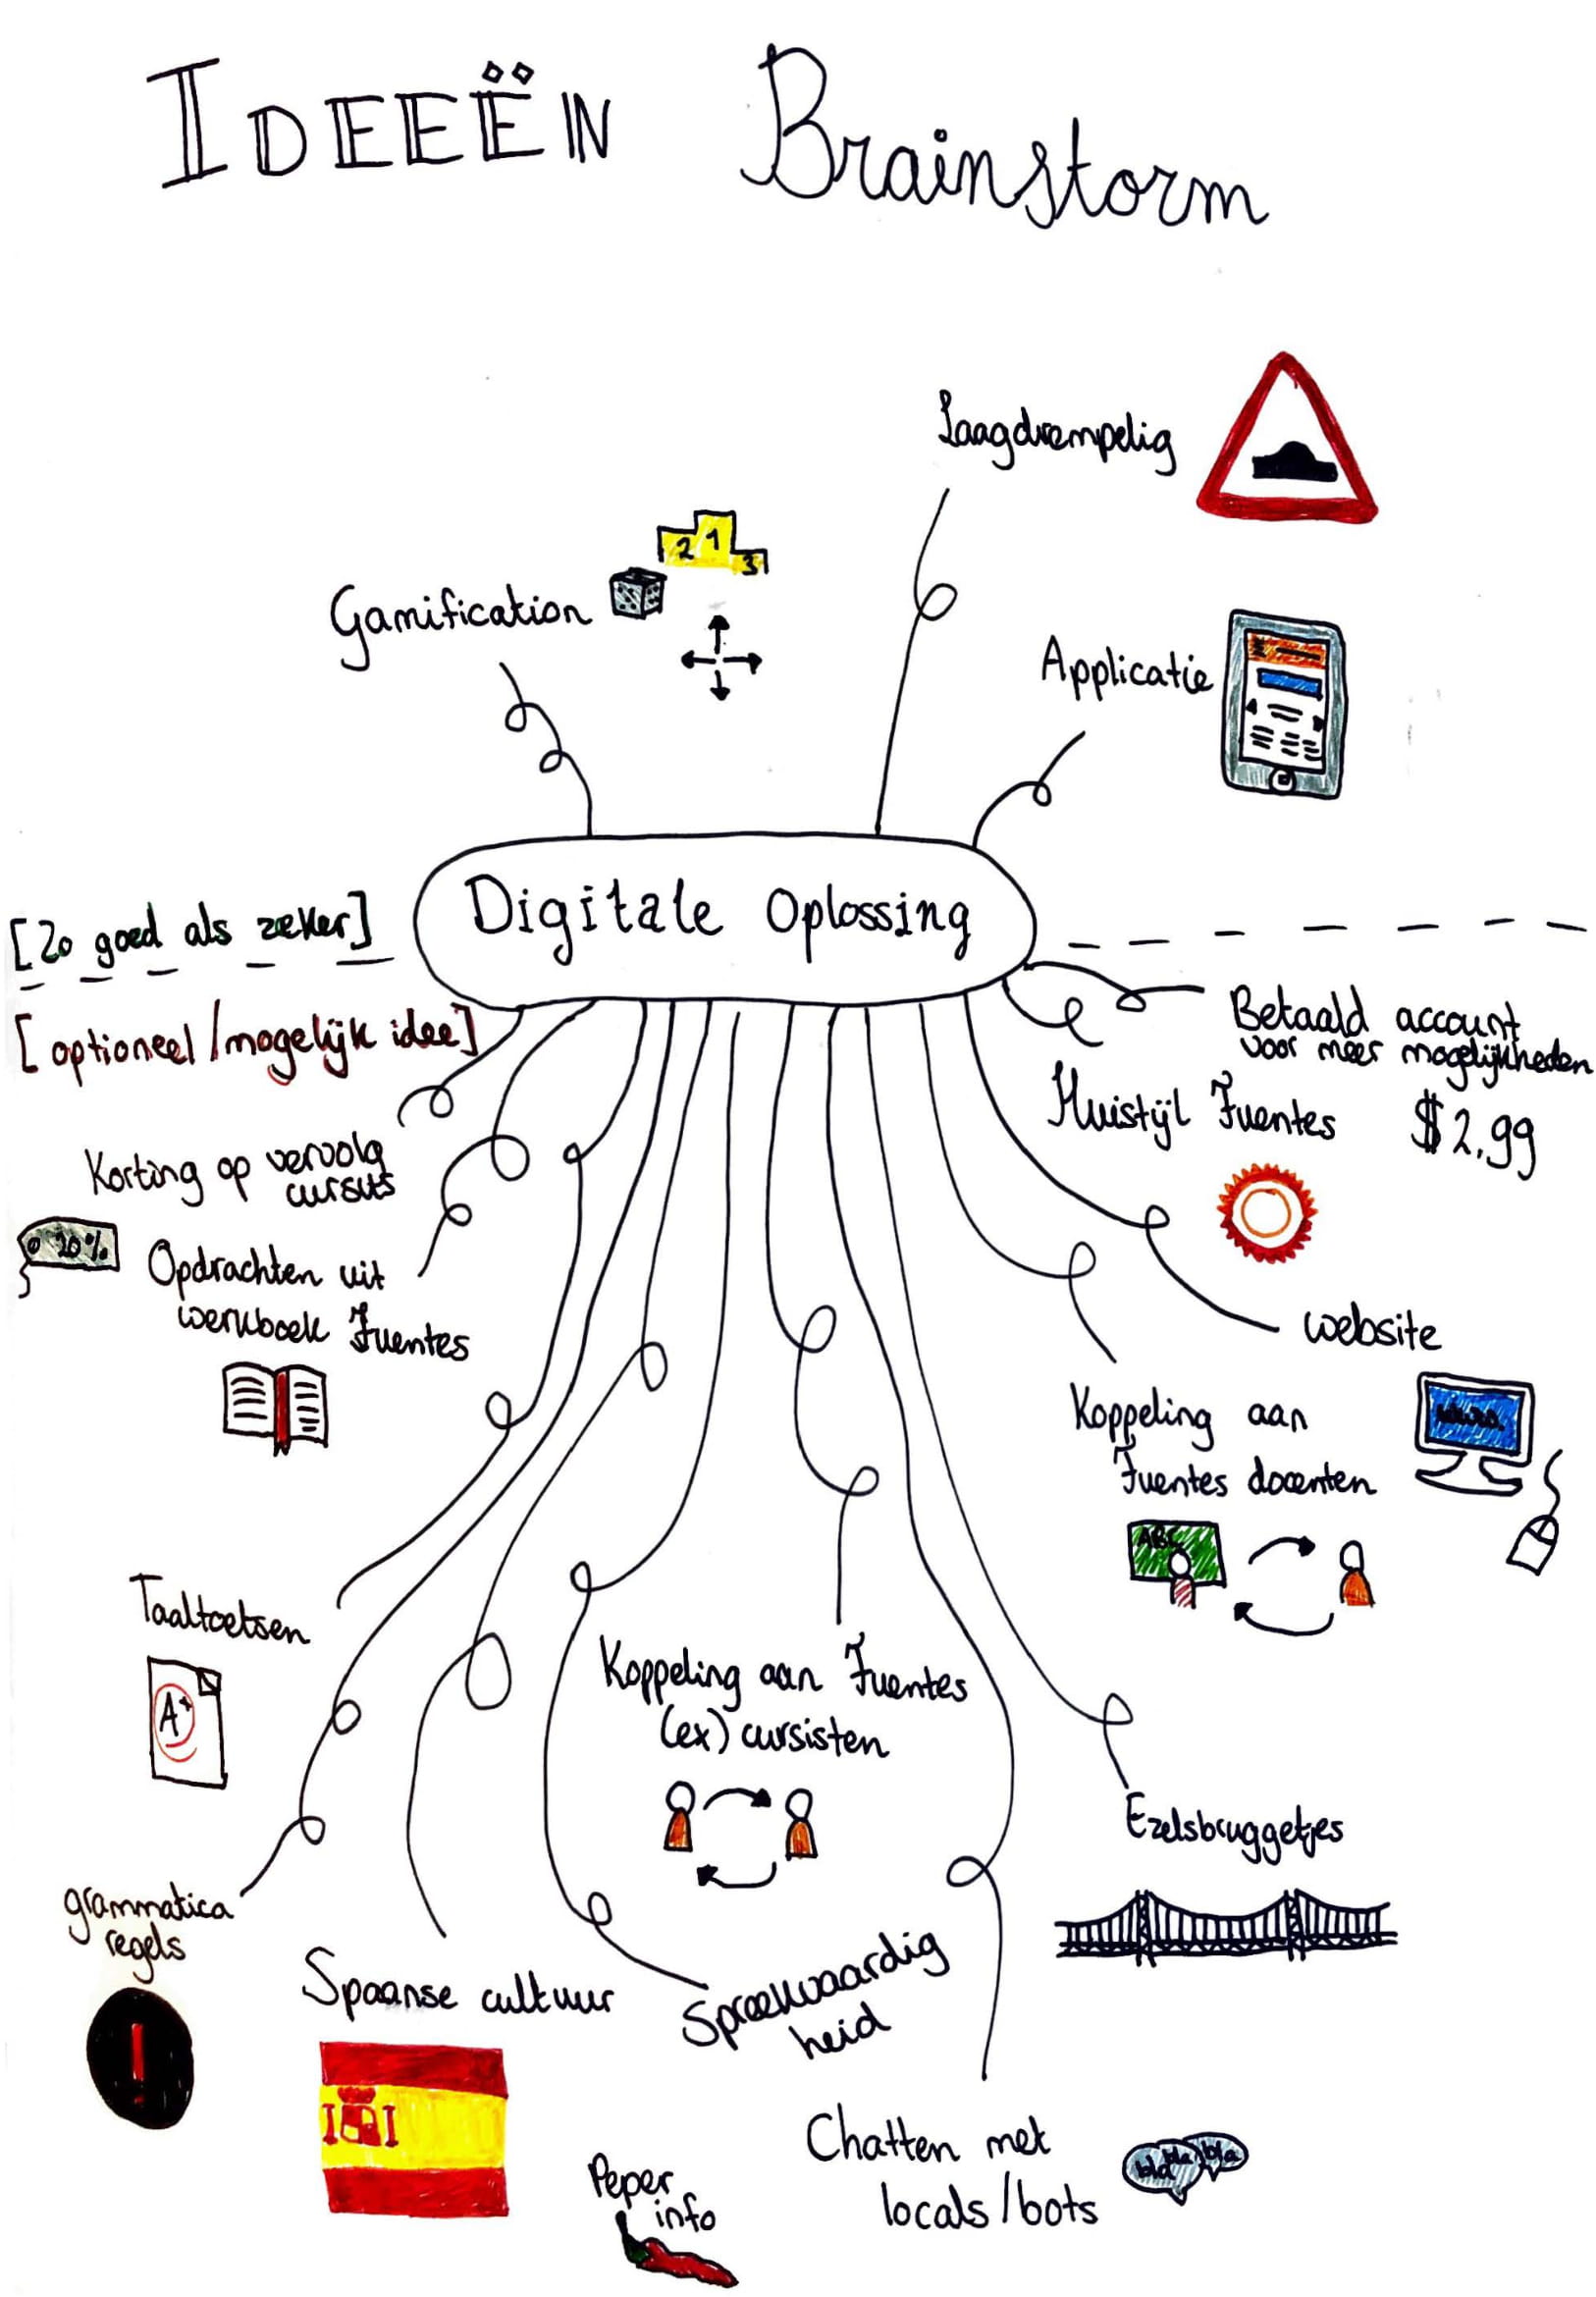 IDEEËN Brainstorm
Laagdrempelig
2 1 3
Gamification
Applicatie
Digitale Oplossing
[Zo goed als zeker]
[optioneel/mogelijk idee]
Betaald account
voor meer mogelijkheden
Huistijl Fuentes
$2,99
Korting op vervolg
cursus
Opdrachten uit
werkboek Fuentes
website
Koppeling aan
Fuentes docenten
ABC
Taaltoetsen
A+
Koppeling aan Fuentes
(ex) cursisten
Ezelsbruggetjes
grammatica
regels
!
Spaanse cultuur
Spreekvaardig
heid
Chatten met
locals/bots
bla bla bla
Peper
info